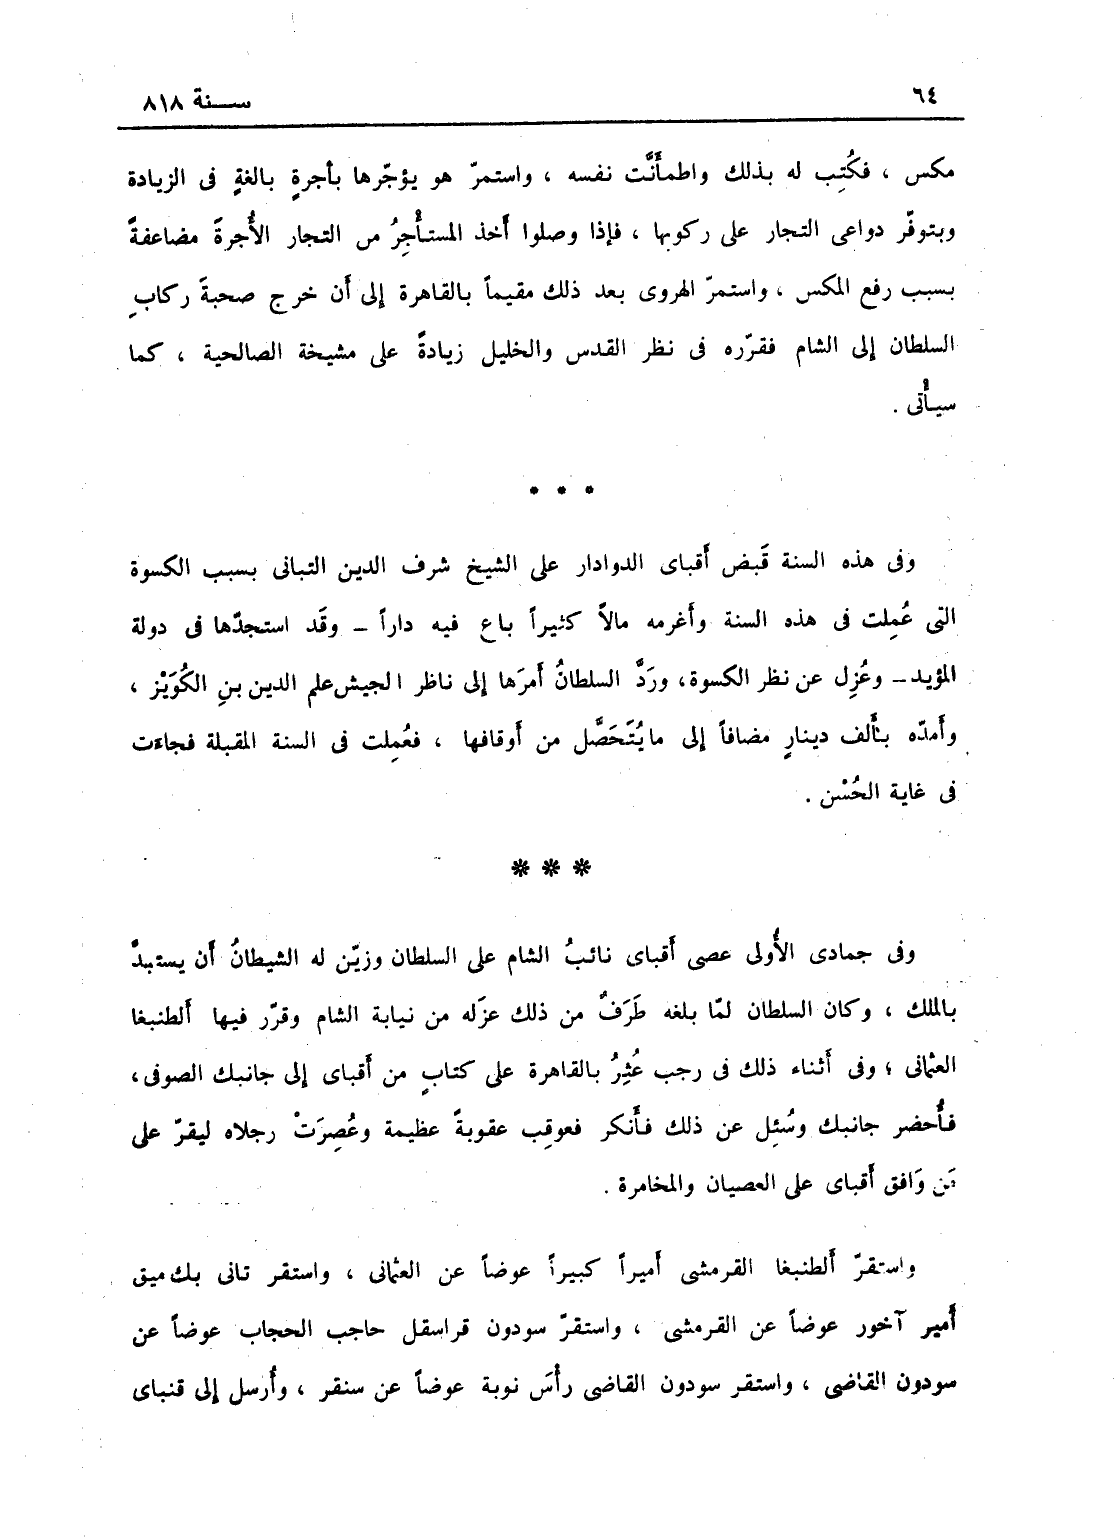 ٦٤ سـنة ٨١٨
مكس ، فكُتِب له بذلك واطمأَنَّت نفسه ، واستمرّ هو يؤجّرها بأجرةٍ بالغةٍ فى الزيادة
وبتوفّر دواعى التجار على ركوبها ، فإذا وصلوا أَخذ المستأْجِرُ من التجار الأُجرةَ مضاعفةً
بسبب رفع المكس ، واستمرّ الهروى بعد ذلك مقيماً بالقاهرة إلى أَن خرج صحبةَ ركابِ
السلطان إلى الشام فقرّره فى نظر القدس والخليل زيادةً على مشيخة الصالحية ، كما
سيأْتى .
* * *
وفى هذه السنة قَبض أَقباى الدوادار على الشيخ شرف الدين التبانى بسبب الكسوة
التى عُمِلت فى هذه السنة وأَغرمه مالاً كثيراً باع فيه داراً – وقَد استجدّها فى دولة
المؤيد – وعُزِل عن نظر الكسوة، وردَّ السلطانُ أَمرَها إلى ناظر الجيش علم الدين بنِ الكُوَيْز ،
وأَمدّه بأَلف دينارٍ مضافاً إلى ما يُتَحَصَّل من أَوقافها ، فعُمِلت فى السنة المقبلة فجاءَت
فى غاية الحُسْن .
* * *
وفى جمادى الأُولى عصى أَقباى نائبُ الشام على السلطان وزيّن له الشيطانُ أَن يستبدَّ
بالملك ، وكان السلطان لمّا بلغه طَرَفٌ من ذلك عزَله من نيابة الشام وقرّر فيها أَلطنبغا
العثمانى ؛ وفى أَثناء ذلك فى رجب عُثِرُ بالقاهرة على كتابٍ من أَقباى إلى جانبك الصوفى ،
فأُحضر جانبك وسُئِل عن ذلك فأَنكر فعوقِب عقوبةً عظيمة وعُصِرَتْ رجلاه ليقرّ على
مَن وَافق أَقباى على العصيان والمخامرة .
واستقرّ أَلطنبغا القرمشى أَميراً كبيراً عوضاً عن العثمانى ، واستقر تانى بك ميق
أَمير آخور عوضاً عن القرمشى ، واستقرّ سودون قراسقل حاجب الحجاب عوضاً عن
سودون القاضى ، واستقر سودون القاضى رأْسَ نوبة عوضاً عن سنقر ، وأُرسل إلى قنباى